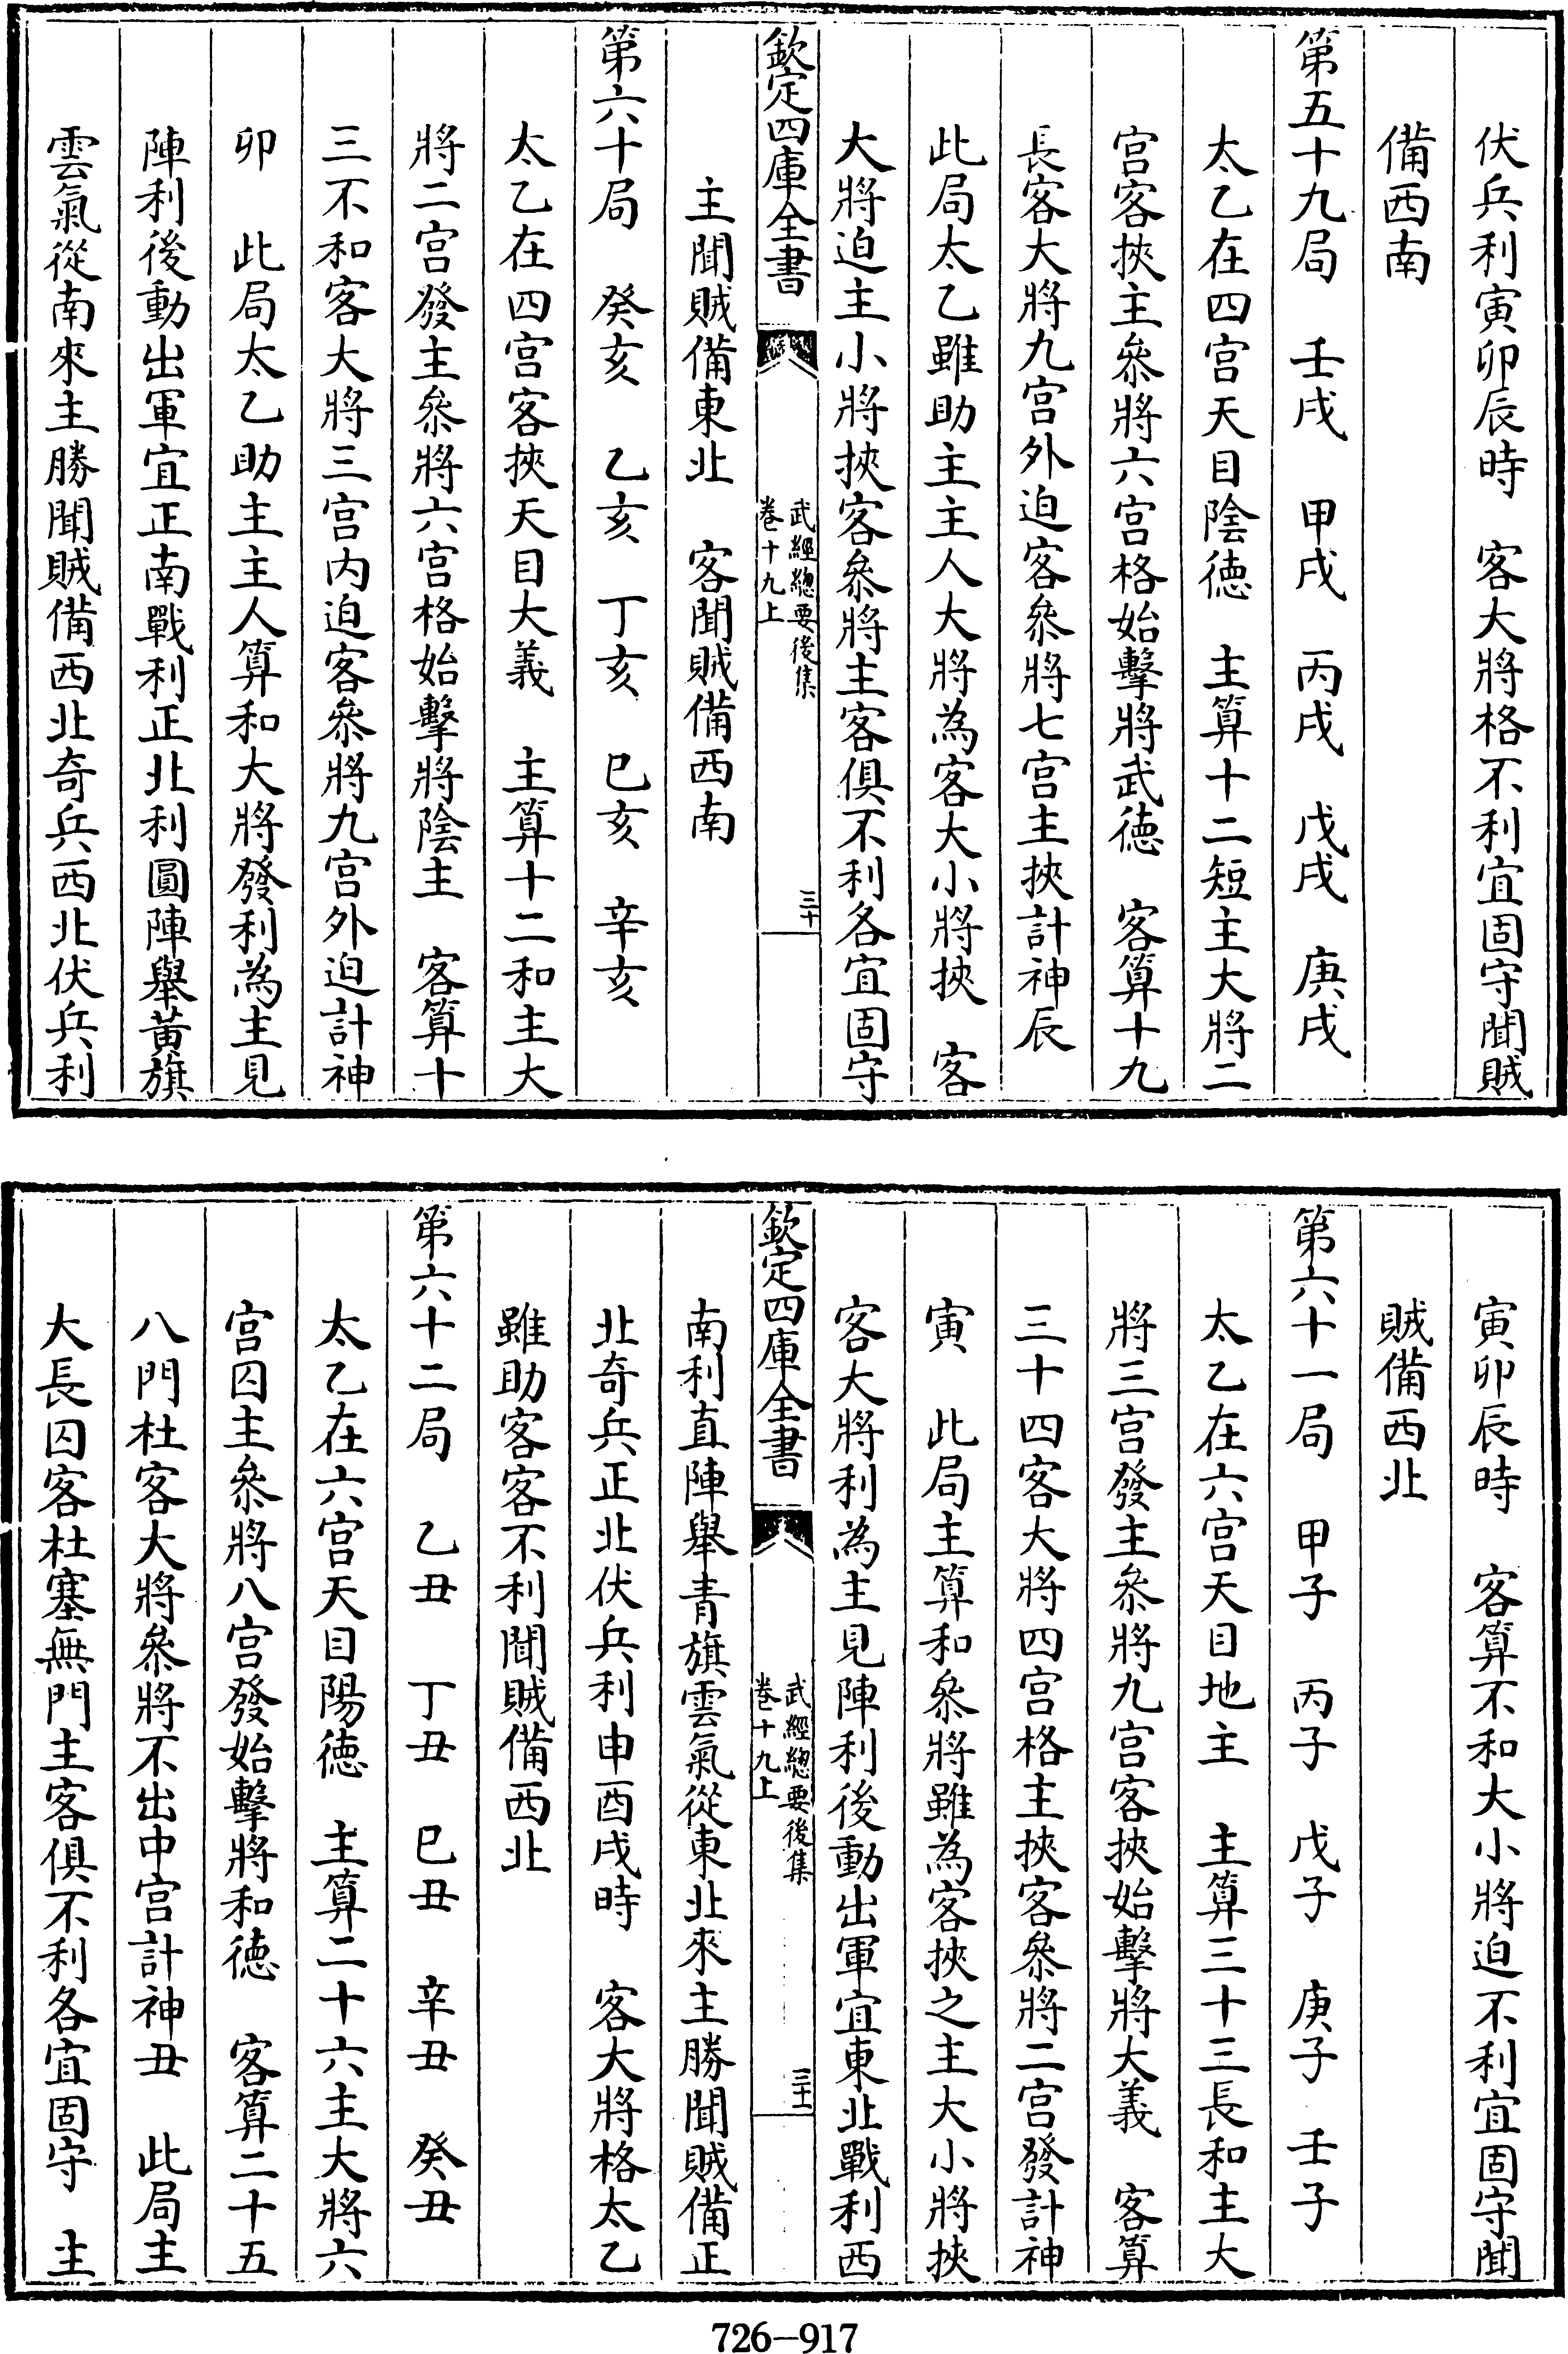 伏兵利寅卯辰時　客大將格不利宜固守聞賊
備西南
第五十九局　壬戌　甲戌　丙戌　戊戌　庚戌
太乙在四宫天目陰徳　主算十二短主大將二
宫客挾主叅將六宫格始擊將武徳　客算十九
長客大將九宫外迫客叅將七宫主挾計神辰
此局太乙雖助主主人大將為客大小將挾　客
大將迫主小將挾客叅將主客俱不利各宜固守
欽定四庫全書
武經總要後集
卷十九上
三十
主聞賊備東北　客聞賊備西南
第六十局　癸亥　乙亥　丁亥　巳亥　辛亥
太乙在四宫客挾天目大義　主算十二和主大
將二宫發主叅將六宫格始擊將陰主　客算十
三不和客大將三宫内迫客叅將九宫外迫計神
卯　此局太乙助主主人算和大將發利為主見
陣利後動出軍宜正南戰利正北利圓陣舉黃旗
雲氣從南來主勝聞賊備西北奇兵西北伏兵利
寅卯辰時　客算不和大小將迫不利宜固守聞
賊備西北
第六十一局　甲子　丙子　戊子　庚子　壬子
太乙在六宫天目地主　主算三十三長和主大
將三宫發主叅將九宫客挾始擊將大義　客算
三十四客大將四宫格主挾客叅將二宫發計神
寅　此局主算和叅將雖為客挾之主大小將挾
客大將利為主見陣利後動出軍宜東北戰利西
欽定四庫全書
武經總要後集
卷十九上
三十一
南利直陣舉青旗雲氣從東北來主勝聞賊備正
北奇兵正北伏兵利申酉戌時　客大將格太乙
雖助客客不利聞賊備西北
第六十二局　乙丑　丁丑　巳丑　辛丑　癸丑
太乙在六宫天目陽徳　主算二十六主大將六
宫囚主叅將八宫發始擊將和徳　客算二十五
八門杜客大將叅將不出中宫計神丑　此局主
大長囚客杜塞無門主客俱不利各宜固守　主
726—917